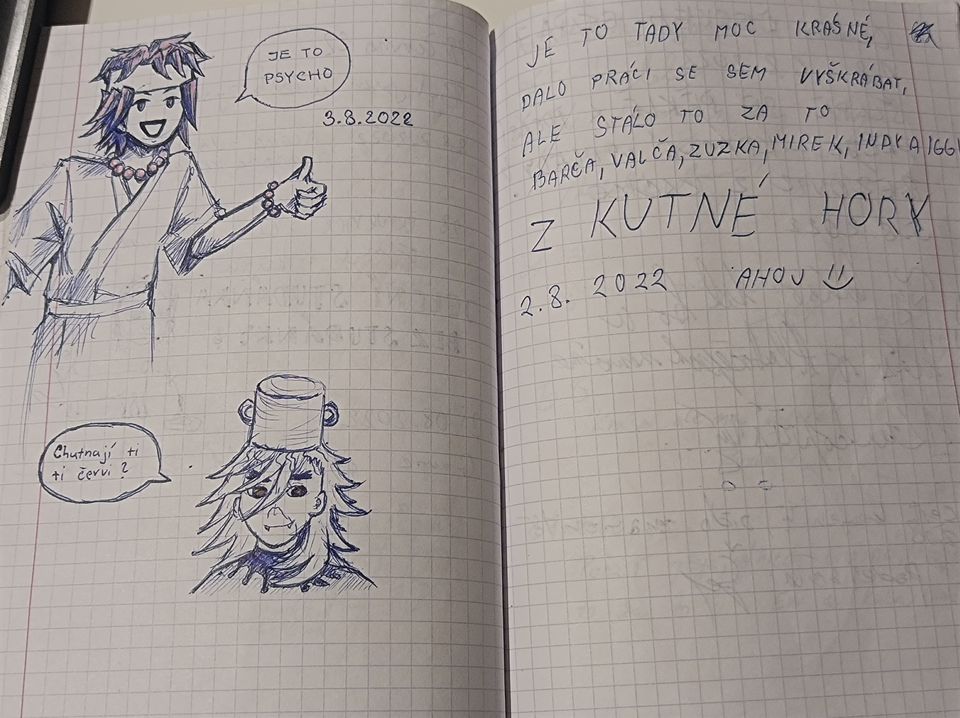 JE TO
PSYCHO
3.8.2022
Chutnají ti
ti červi?
JE TO TADY MOC KRÁSNÉ,
DALO PRÁCI SE SEM VYŠKRÁBAT,
ALE STÁLO TO ZA TO
BARČA, VALČA, ZUZKA, MIREK, INDY A IGGY
Z KUTNÉ HORY
2.8. 2022 AHOJ